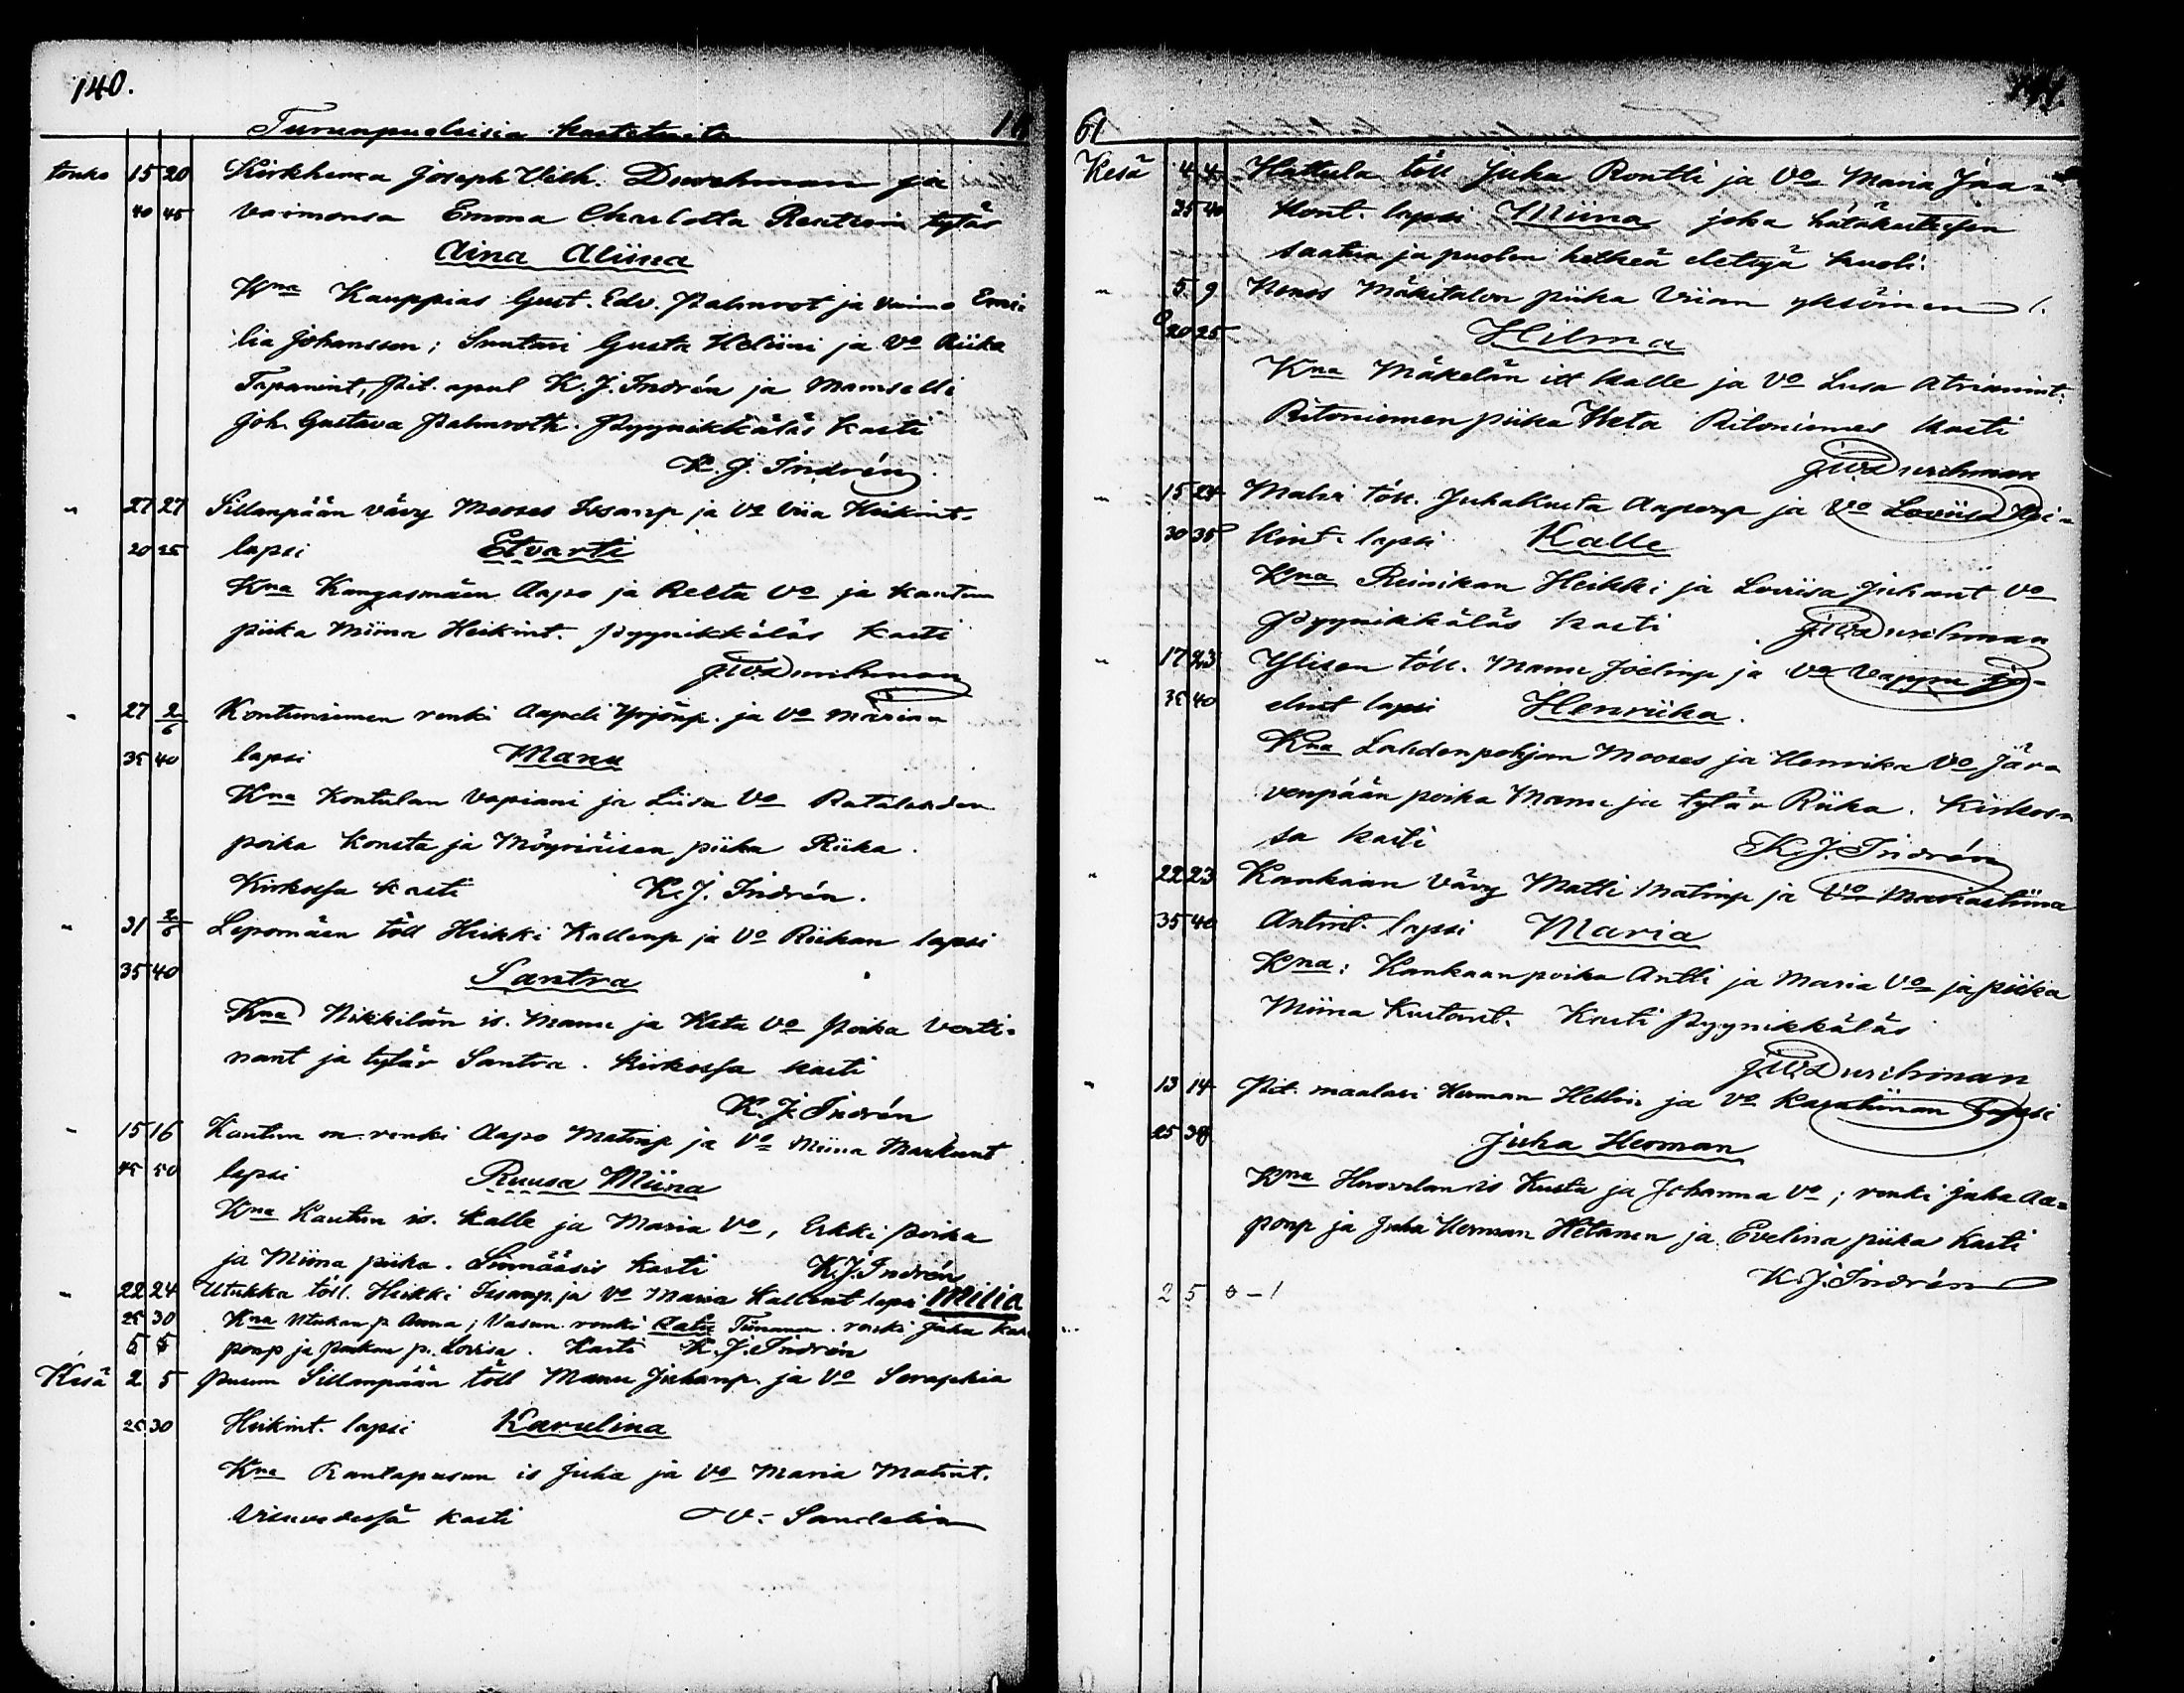 140.
Turunpuolisia kastetuita 18
touko 15 20 Kirkherra Joseph Vilh. Durchman ja
40 45 vaimonsa Emma Charlotta tytär
Aina Aliina
Kna Kauppias Gust. Edv. Palmroot ja vaimo Emi-
lia Johansson; Suntari Gusta Heliini ja Vo Riika
Tapanint, Pit. apul K. J. Indrén ja Mamselli
Joh. Gustava Palmroth. Pyynikkäläs kasti
K. J. Indrén.
" 27 27 Sillanpään vävy Mooses Iisanp ja Vo Viia Heikint.
20 25 lapsi Etvarti
Kna Kangasmäen Aapo ja Vo ja Kantun
piika Miina Heikint. Pyynikkäläs kasti
J.W. Durchman
" 27 2/6 Kontunimen renki Aapeli Yrjönp. ja Vo Marian
35 40 lapsi Manu
Kna Kontulan Vapiani ja Liisa Vo Ratalahden
poika Konsta ja piika Riika.
Kirkossa kasti K. J. Indrén.
" 31 2/6 Lepomäen töll Heikki Kallenp ja Vo Riikan lapsi
35 40 Santra
Kna Nikkilän is. Manu ja Keta Vo poika Verti-
nant ja tytär Santra. Kirkossa kasti
K. J. Indrén
" 15 16 Kantun m. renki Aapo Matinp ja Vo Miina Markunt
45 50 lapsi Ruusa Miina
Kna Kantun is. Kalle ja Maria Vo, Erkki poika
ja Miina piika. kasti K. J. Indrén
" 22 24 Utukka töll. Heikki Iisanp. ja Vo Maria Kallent lapsi Milia
25 30 Kna Utukan p. Anna; renki renki Juha
5 5 ponp ja p. Lovisa. Kasti K. J. Indrén
Kesä 2 5 Sillanpään töll Manu Juhanp. ja Vo Seraphia
25 30 Heikint. lapsi Karulina
Kna is Juha ja Vo Maria Matint.
Visuvedessä kasti V. Sandelin
141.
61
Kesä 4 4 Hattula töll Juha Rontti ja Vo Maria Jaa-
35 40 kont. lapsi Miina joka hätäkasteesen
saatua ja puolen hetkeä elettyä kuoli.
" 5 9 Mäkitalon piika Viian yksöinen
20 25 Hilma
Kna Mäkelän itt Kalle ja Vo Lusa Atriamint.
Ritoniemen piika Keta Ritoniemes kasti
J.W. Durchman
" 15 24 Malvi töll. Juha Kusta Aaponp ja Vo Loviisa Hei-
30 35 kint. lapsi Kalle
Kna Reinikan Heikki ja Loviisa Juhant Vo
Pyynikkäläs kasti J.W. Durchman
" 17 23 Ylisen töll. Manu Joelinp ja Vo Vappu Jo-
35 40 elint lapsi Henriika.
Kna Lahdenpohjan Mooses ja Henrika Vo Jär-
venpään poika Manu ja tytär Riika. Kirkos-
sa kasti K. J. Indrén
" 22 23 Kankaan Vävy Matti Matinp ja Vo Mariastiina
35 40 Antint. lapsi Maria
Kna: Kankaan poika Antti ja Maria Vo ja piika
Miina Kustant. Kasti Pyynikkäläs
J.W. Durchman
" 13 14 Pit. maalari Herman ja Vo lapsi
25 30 Juha Herman
Kna is Kusta ja Johanna Vo; renki Juha Aa-
ponp ja Juha Herman Hetanen ja Evelina piika Kasti
K. J. Indrén
2 5 0 - 1